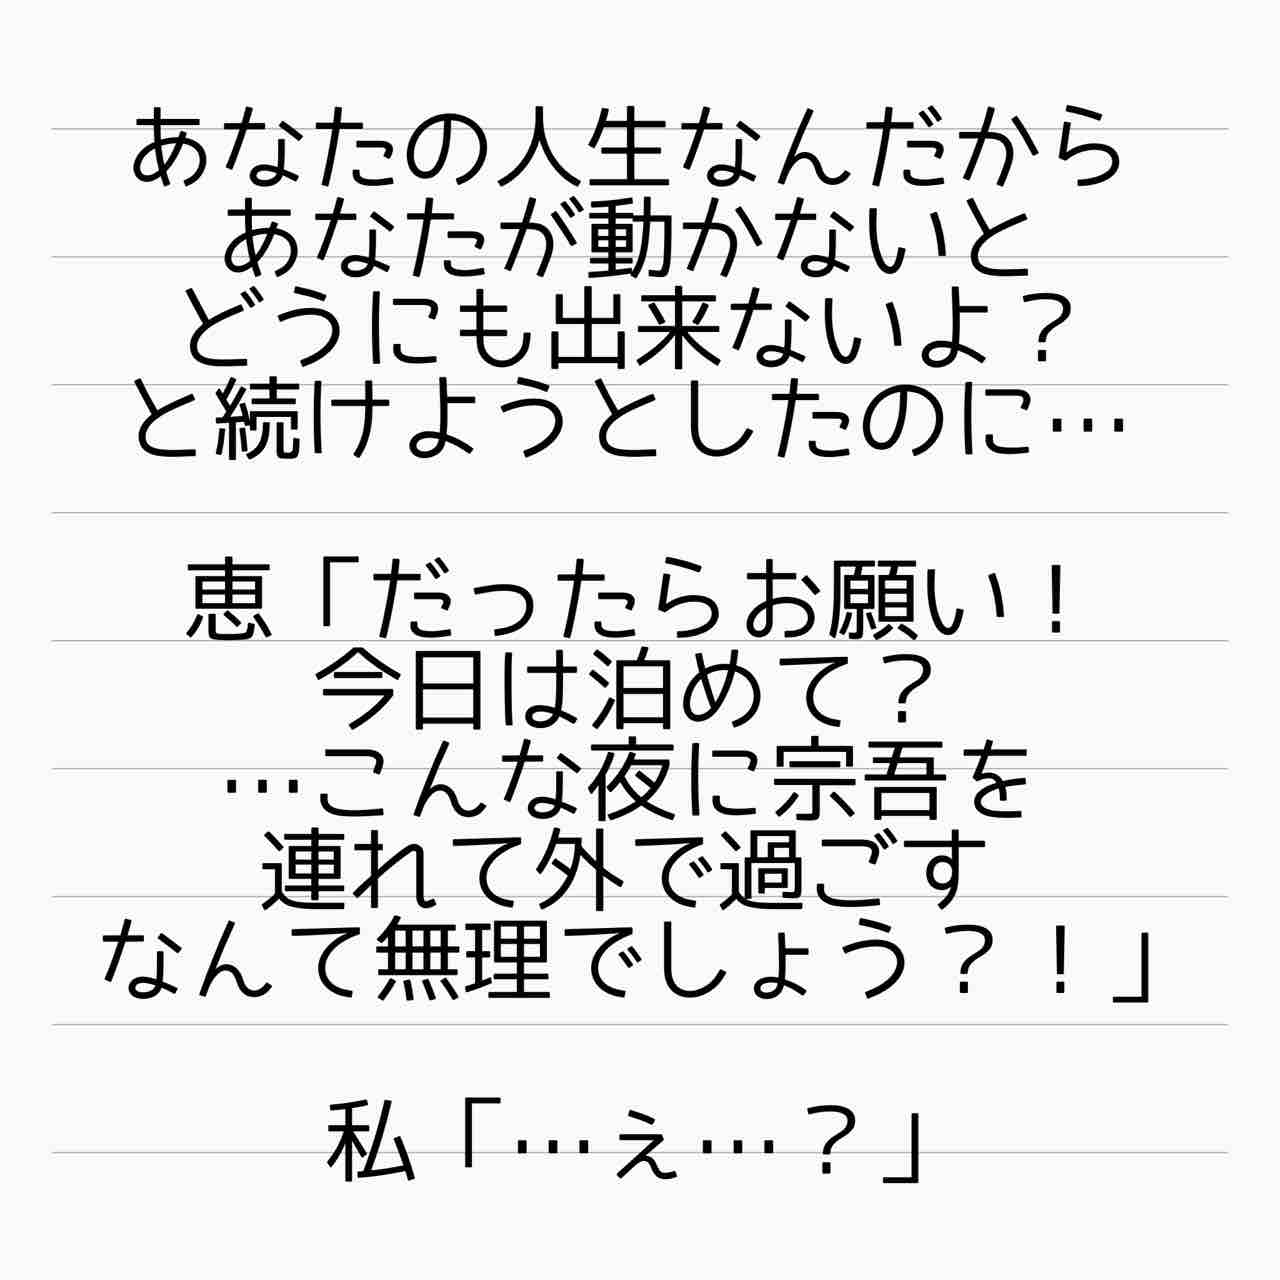 あなたの人生なんだから
あなたが動かないと
どうにも出来ないよ？
と続けようとしたのに…
恵「だったらお願い！
今日は泊めて？
…こんな夜に宗吾を
連れて外で過ごす
なんて無理でしょう？！」
私「…ぇ…？」